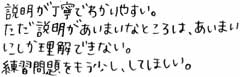 説明が丁寧でわかりやすい。
ただ説明があいまいなところは、あいまい
にしか理解できない。
練習問題をもう少し、してほしい。